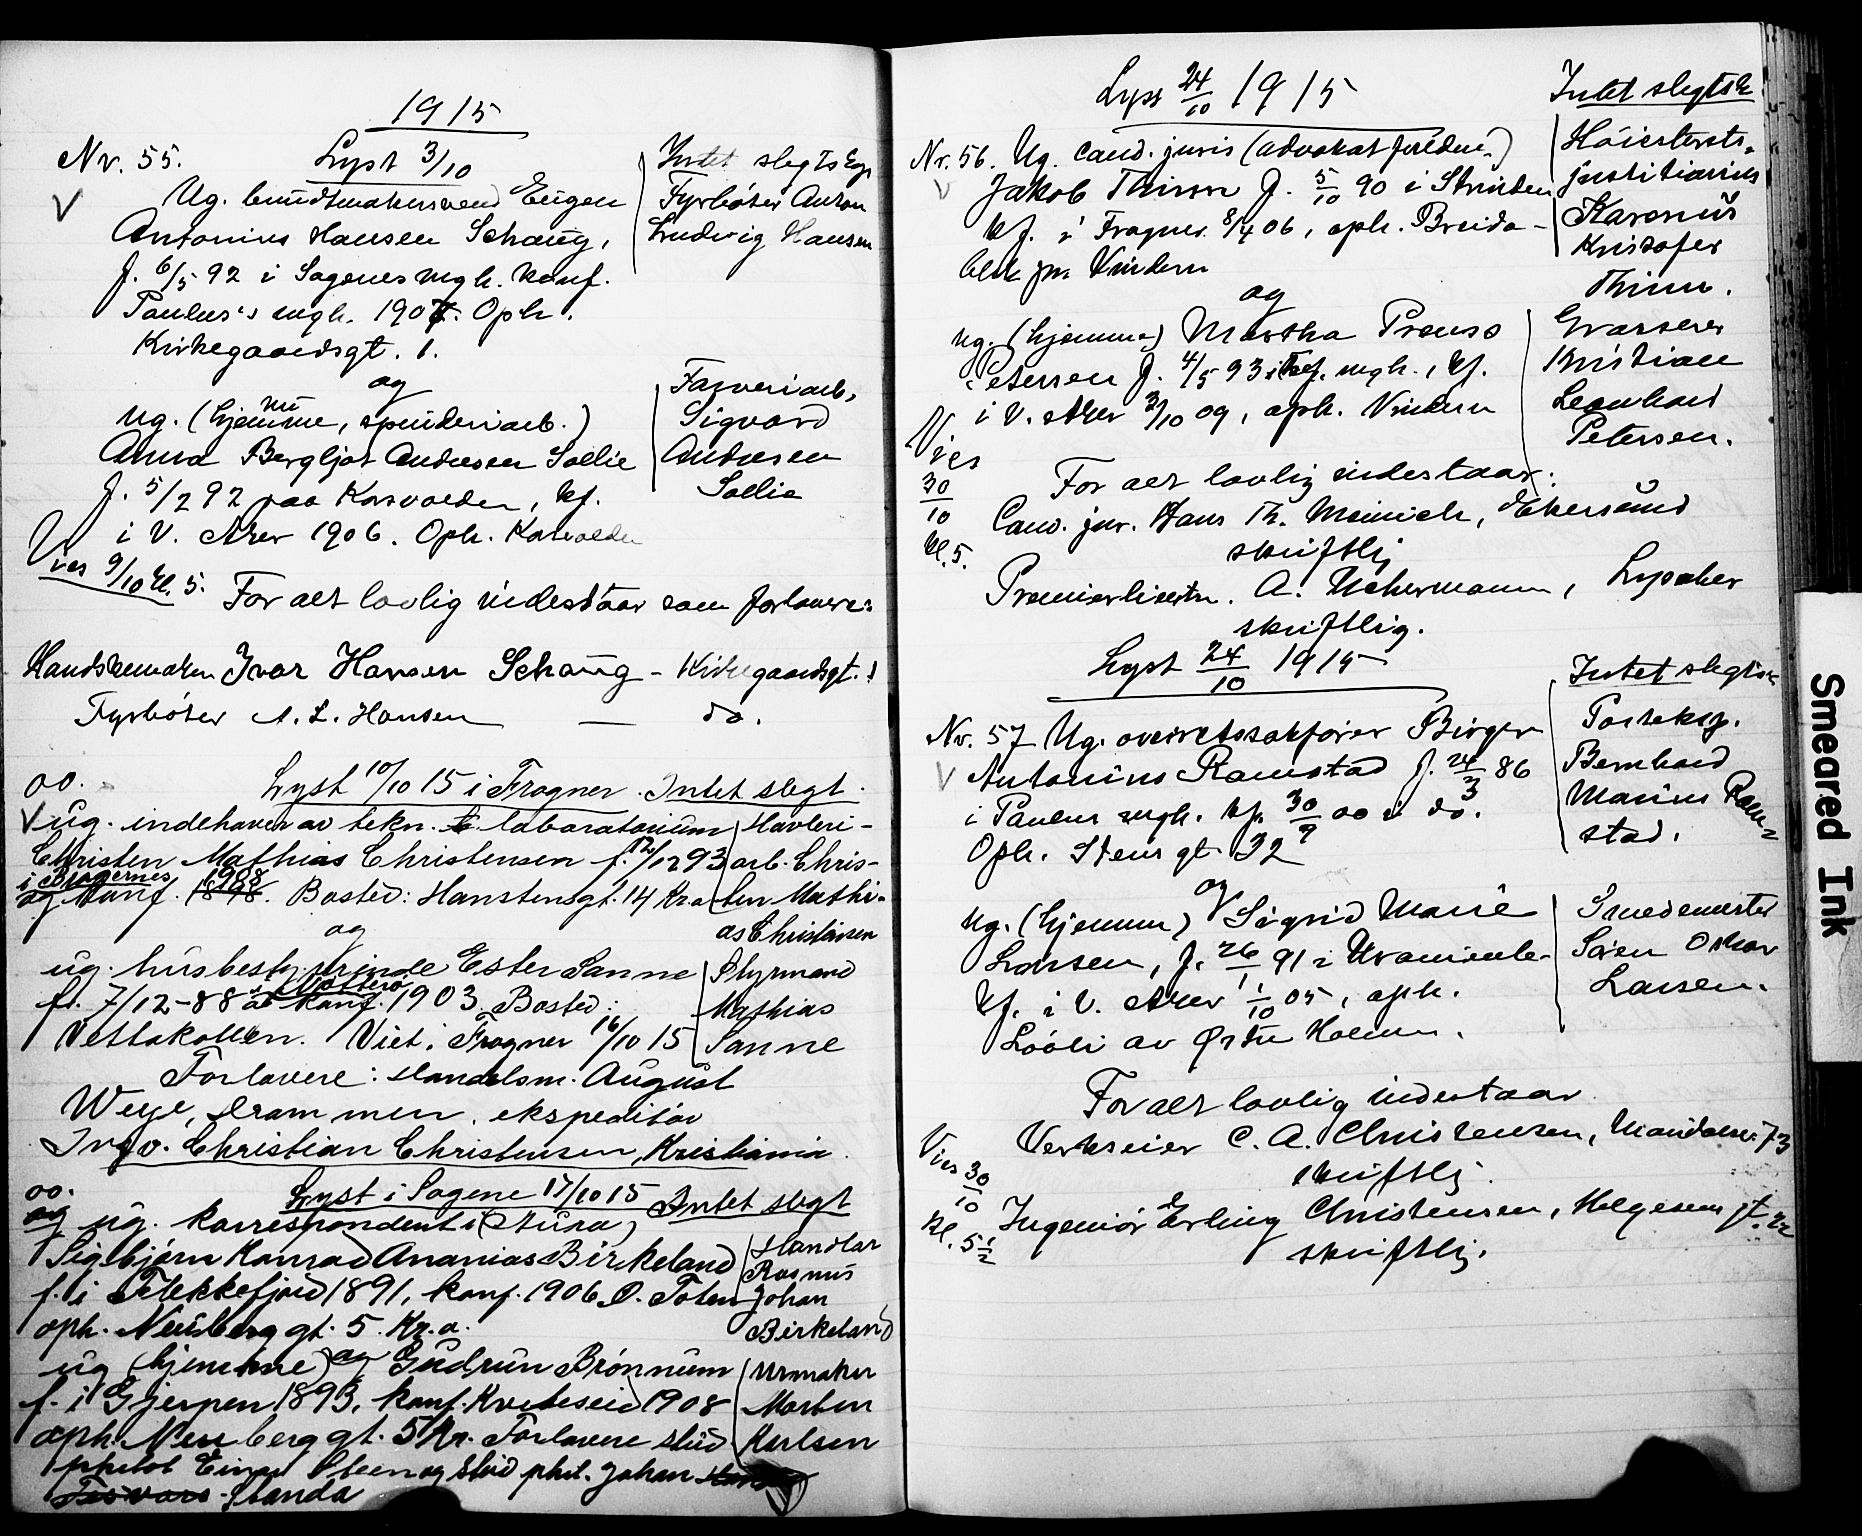 1915
Nr. 55. Lyst 3/10
Intet slegtskp
Ug. bundtmakersvend Eugen
Antonius Hansen Schaug,
f. 6/5 92 i Sagenes mgh. konf.
Paulus's mgh. 1907. Oph.
Kirkegaardsgt. 1.
Fyrbøter Anton
Ludvig Hansen
og
ug. (hjemme, spinderiarb.)
Anna Bergljot Andresen Sollie
f. 5/2 92 paa Korsvolden, kf.
i V. Aker 1906. Oph. Korsvolden
Farveriarb.
Sigvard
Andresen
Sollie
Vies 9/10 kl. 5. For alt lovlig indestaar som forlovere:
Handskemaker Ivar Hansen Schaug - Kirkegaardsgt. 1
Fyrbøter A. L. Hansen — do.
oo. Lyst 10/10 15 i Frogner. Intet slegt.
ug. indehaver av tekn. laboratorium
Christen Mathias Christensen f. 12/12 93
i Bragernes
og konf. 1908. Bosted: Hanstensgt. 14 Kra
Havleri-
arb. Chris-
ten Mathi-
as Christensen
og
ug. husbestyrerinde Ester Sanne
f. 7/12-88 konf. 1903 Bosted:
Vettakollen. Viet i Frogner 16/10 15
Styrmand
Mathias
Sanne
Forlovere: Handelsm. August
Weye, Drammen, ekspeditør
Ingv. Christian Christensen, Kristiania.
oo. Lyst i Sagene 17/10 15 Intet slegt
ug. korrespondent i
Sigbjørn Konrad Ananias Birkeland
f. i Flekkefjord 1891, konf. 1906 Ø. Toten
oph. Neuberggt. 5. Kr.a.
Handlar
Rasmus
Johan
Birkeland
og
ug (hjemme) Gudrun Brønnum
f. i Gjerpen 1893, konf. Kviteseid 1908
oph. Neuberggt. 5 Kr. Forlovere stud
philol Einar Steen og stud phil. Johan
Handa
Urmaker
Morten
Karlsen
Lyst 24/10 1915
Intet slegtsk
Nr. 56. Ug. cand. juris (advokatfuldm.)
Jakob Thinn f. 5/10 90 i Strinden
kf. i Frogner 8/4 06, oph. Breida-
blik pr. Vindern
Høiesterets-
justitiarius
Karenus
Kristofer
Thinn.
og
ug. (hjemme) Martha Preuss
Petersen f. 4/5 93 i Tref. mgh., kf.
i V. Aker 3/10 09, oph. Vindern
Grosserer
Kristian
Leonhard
Petersen.
Vies
30/10
kl. 5.
For alt lovlig indestaar:
Cand. jur. Hans Th. Meinich, Ekersund
skriftlig
Premierløitn. A. Uchermann, Lysaker
skriftlig.
Lyst 24/10 1915
Intet slegtsk
Nr. 57 Ug. overretssakfører Birger
Antonius Ramstad f. 24/3 86
i Paulus mgh. kf. 30/9 00 i do.
Oph. Stensgt. 32
Posteksp.
Bernhard
Marius Ram-
stad.
og
ug. (hjemme) Sigrid Marie
Larsen, f. 26/1 91 i Uranienb.
kf. i V. Aker 1/10 05, oph.
Lööli av Østre Holmen.
Smedemester
Søren Oskar
Larsen.
For alt lovlig indestaar
Verkseier C. A. Christensen, Maridalsv. 73
skriftlig.
Vies 30/10
kl. 5 1/2
Ingeniør Erling Christensen, Helgesens gt. 22
skriftlig.
Smeared Ink